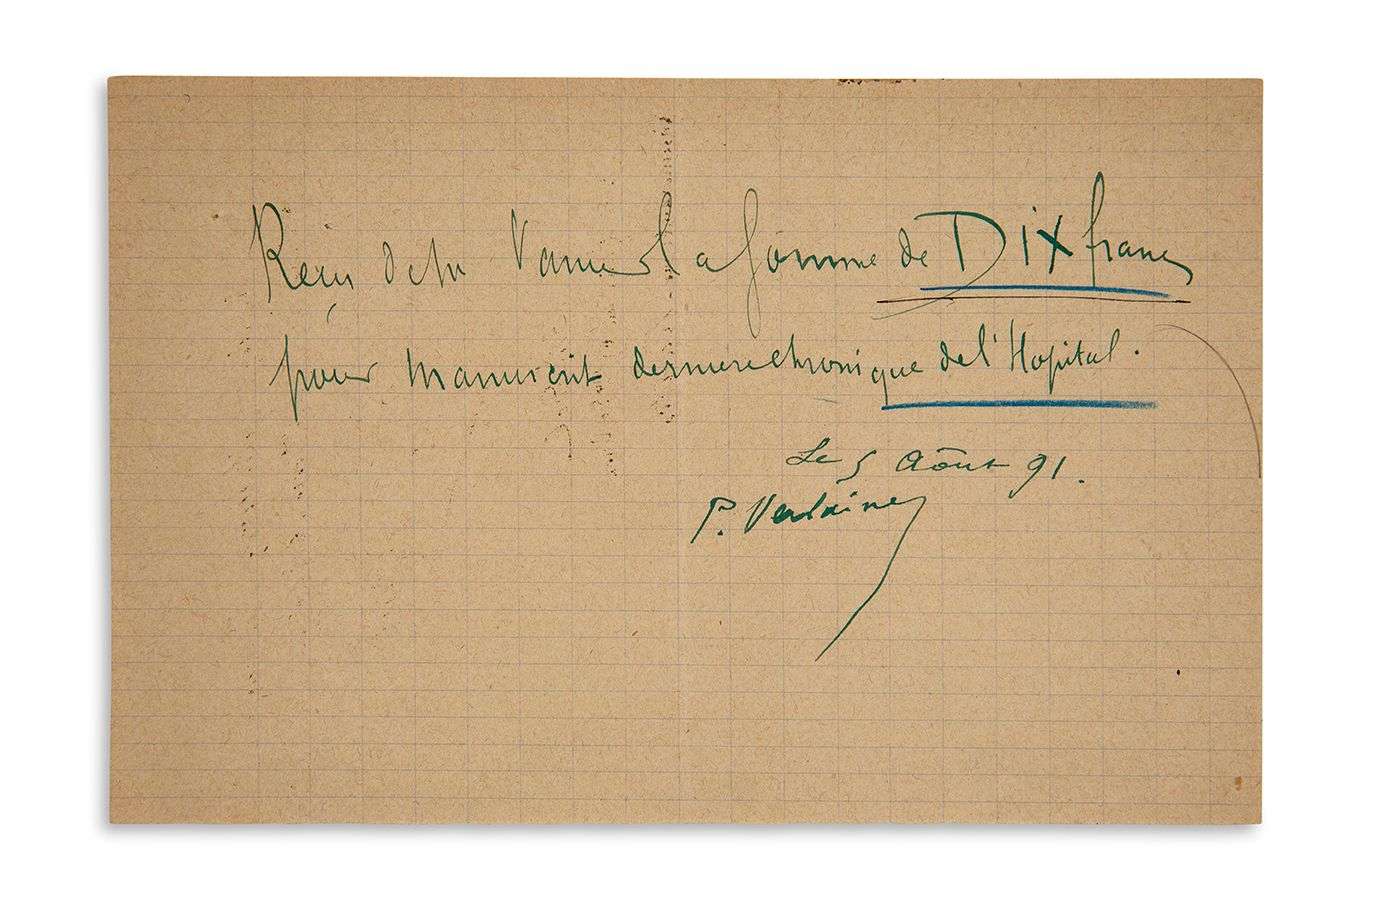 Reçu de Mr Vanier la somme de DIX francs
pour manuscrit dernière chronique de l'Hopital.
Le 5 Août 91.
P. Verlaine